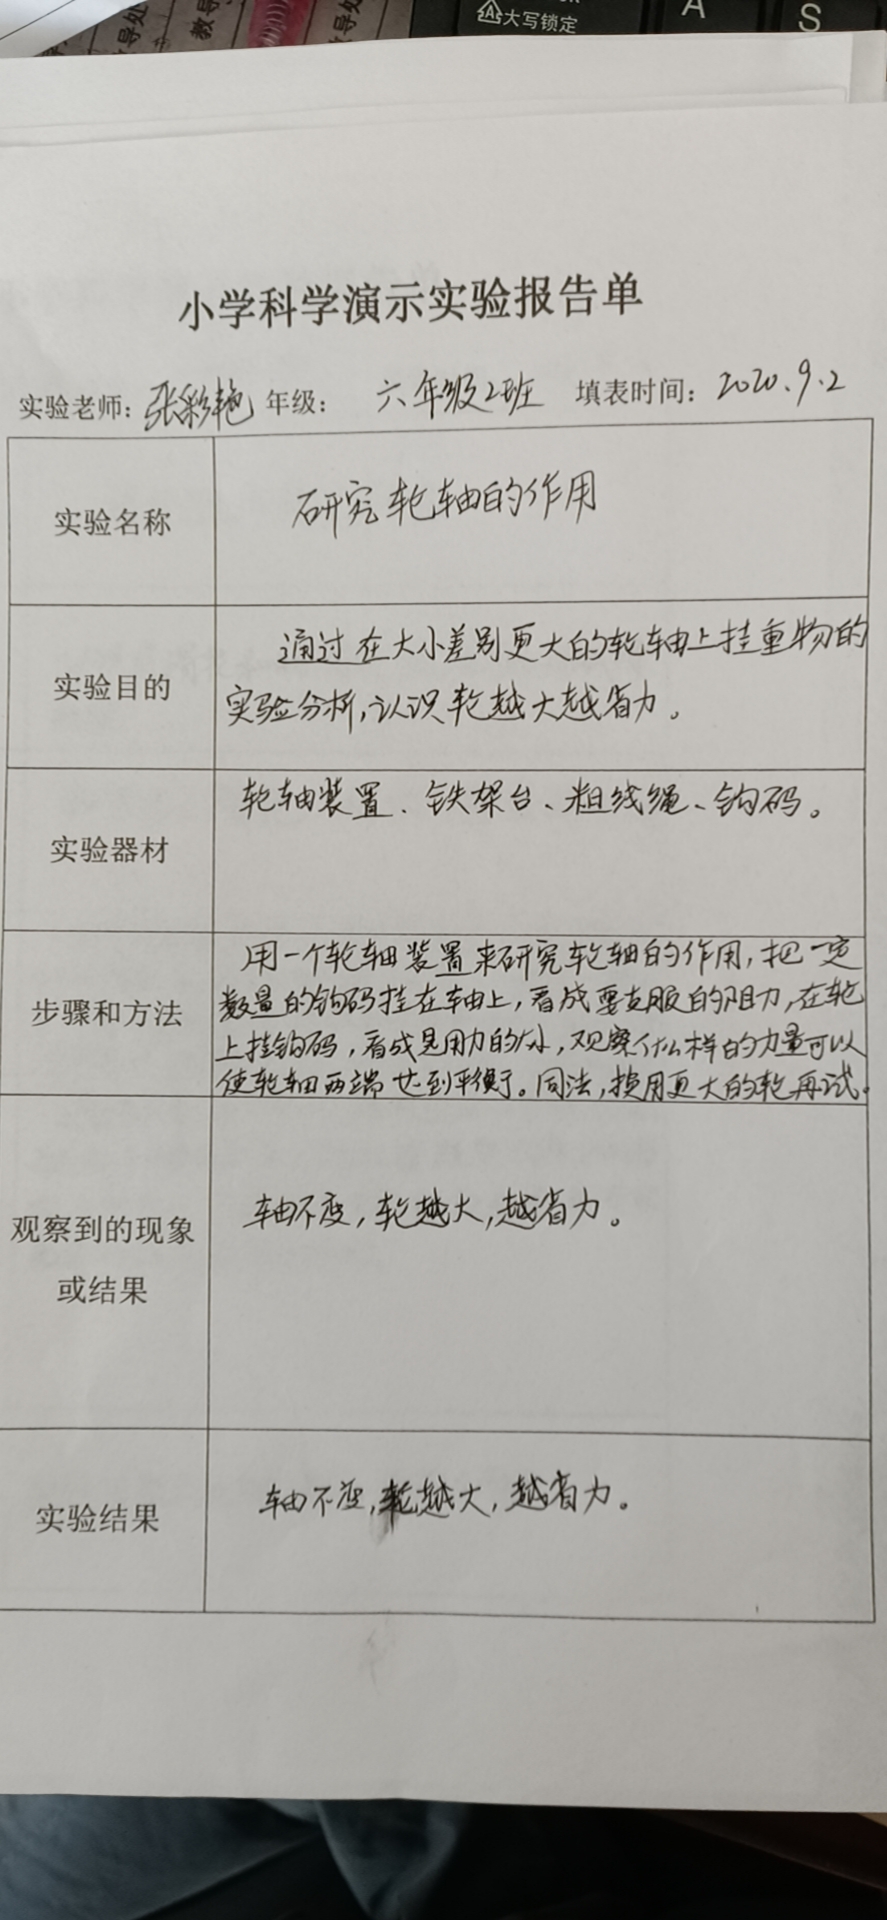 大写锁定
A
S
教导处
教导处
小学科学演示实验报告单
实验老师：张彩艳 年级： 六年级2班 填表时间：2020.9.2
实验名称
研究轮轴的作用
实验目的
通过在大小差别更大的轮轴上挂重物的
实验分析，认识轮越大越省力。
实验器材
轮轴装置、铁架台、粗线绳、钩码。
步骤和方法
用一个轮轴装置来研究轮轴的作用，把一定
数量的钩码挂在轴上，看成要克服的阻力，在轮
上挂钩码，看成是用力的大小，观察什么样的力量可以
使轮轴两端达到平衡。同法，换用更大的轮再试。
观察到的现象
或结果
轴不变，轮越大，越省力。
实验结果
轴不变，轮越大，越省力。